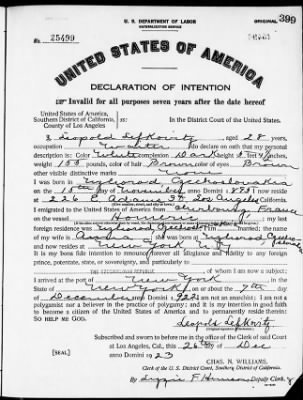 U. S. DEPARTMENT OF LABOR
NATURALIZATION SERVICE
ORIGINAL 399
No. 25499
UNITED STATES OF AMERICA
DECLARATION OF INTENTION
Invalid for all purposes seven years after the date hereof
United States of America,
Southern District of California,
County of Los Angeles
ss:
In the District Court of the United States.
I, Leopold Lefkovitz, aged 28 years,
occupation, do declare on oath that my personal
description is: Color White, complexion Dark, height 5 feet inches,
weight pounds, color of hair Brown, color of eyes Brown
other visible distinctive marks None
I was born in Czechoslovakia
on the day of November, anno Domini; I now reside
at 226 E. Adams St. Los Angeles California
I emigrated to the United States of America from France
on the vessel; my last
foreign residence was married; the name
of my is; was born at
and now resides at New York N.Y.
It is my bona fide intention to renounce forever all allegiance and fidelity to any foreign
prince, potentate, state, or sovereignty, and particularly to
THE CZECHOSLOVAK REPUBLIC, of whom I am now a subject;
I arrived at the port of New York, in the
State of New York, on or about the 7th day
of December, anno Domini 1922; I am not an anarchist; I am not a
polygamist nor a believer in the practice of polygamy; and it is my intention in good faith
to become a citizen of the United States of America and to permanently reside therein:
SO HELP ME GOD.
Leopold Lefkovitz
Subscribed and sworn to before me in the office of the Clerk of said Court
at Los Angeles, Cal., this 26th day of Dec
anno Domini 1923
[SEAL]
CHAS. N. WILLIAMS,
Clerk of the U. S. District Court, Southern District of California.
By Deputy Clerk.